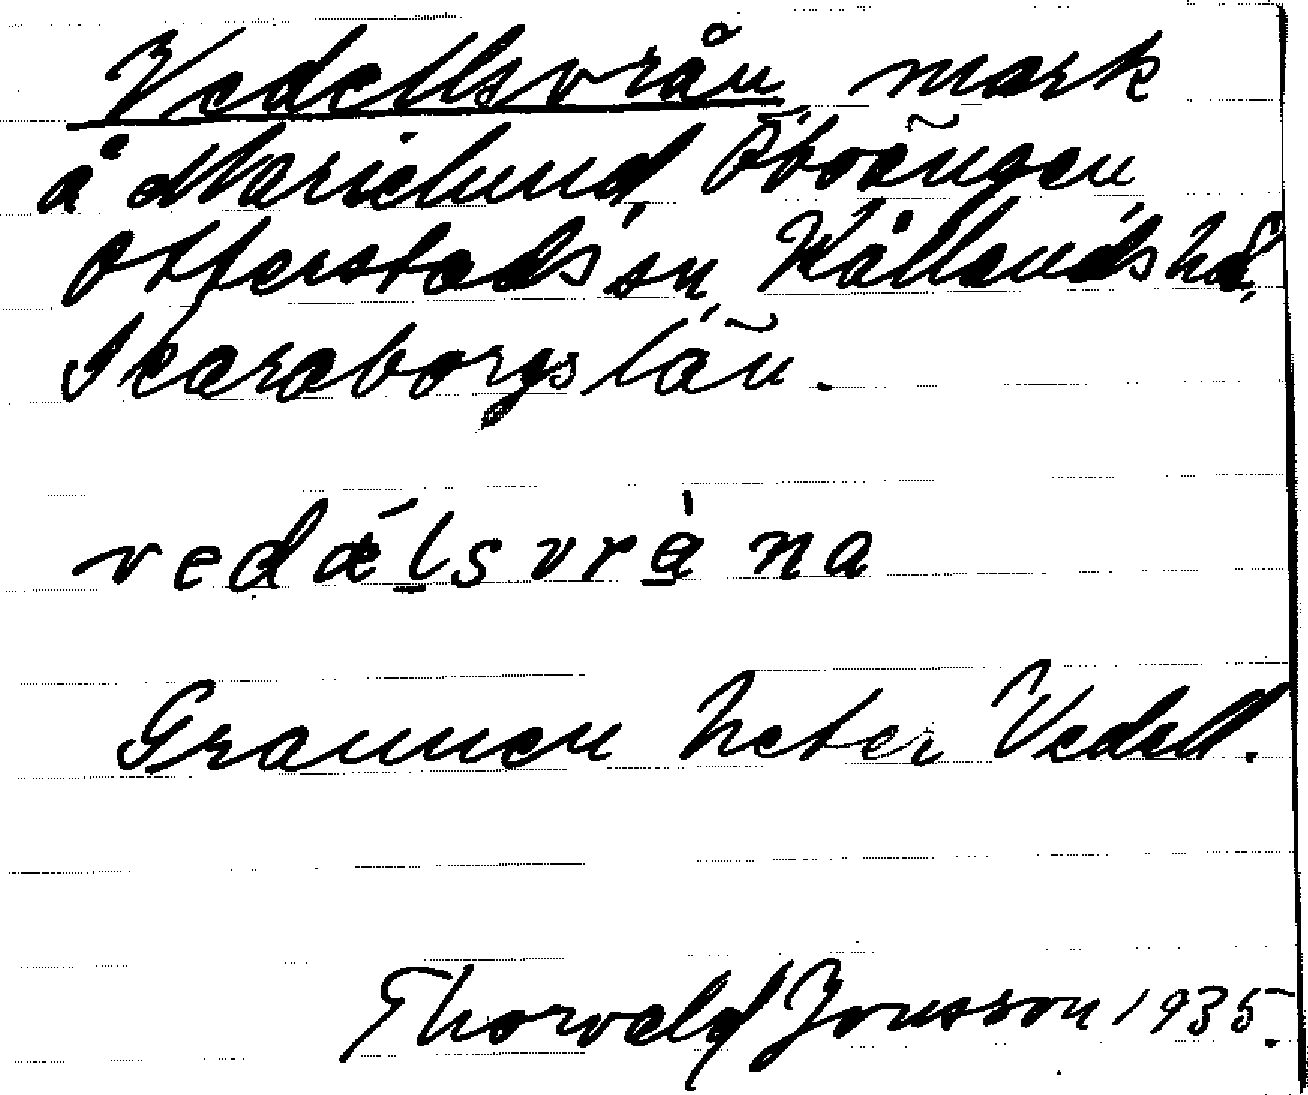 Vedellsvrån, mark
å Marielund, Åboängen
Otterstads sn, Kållands hd,
Skaraborgs län.
vedǽlsvràna
Grannen heter Vedell.
Thorvald Jonsson 1935.